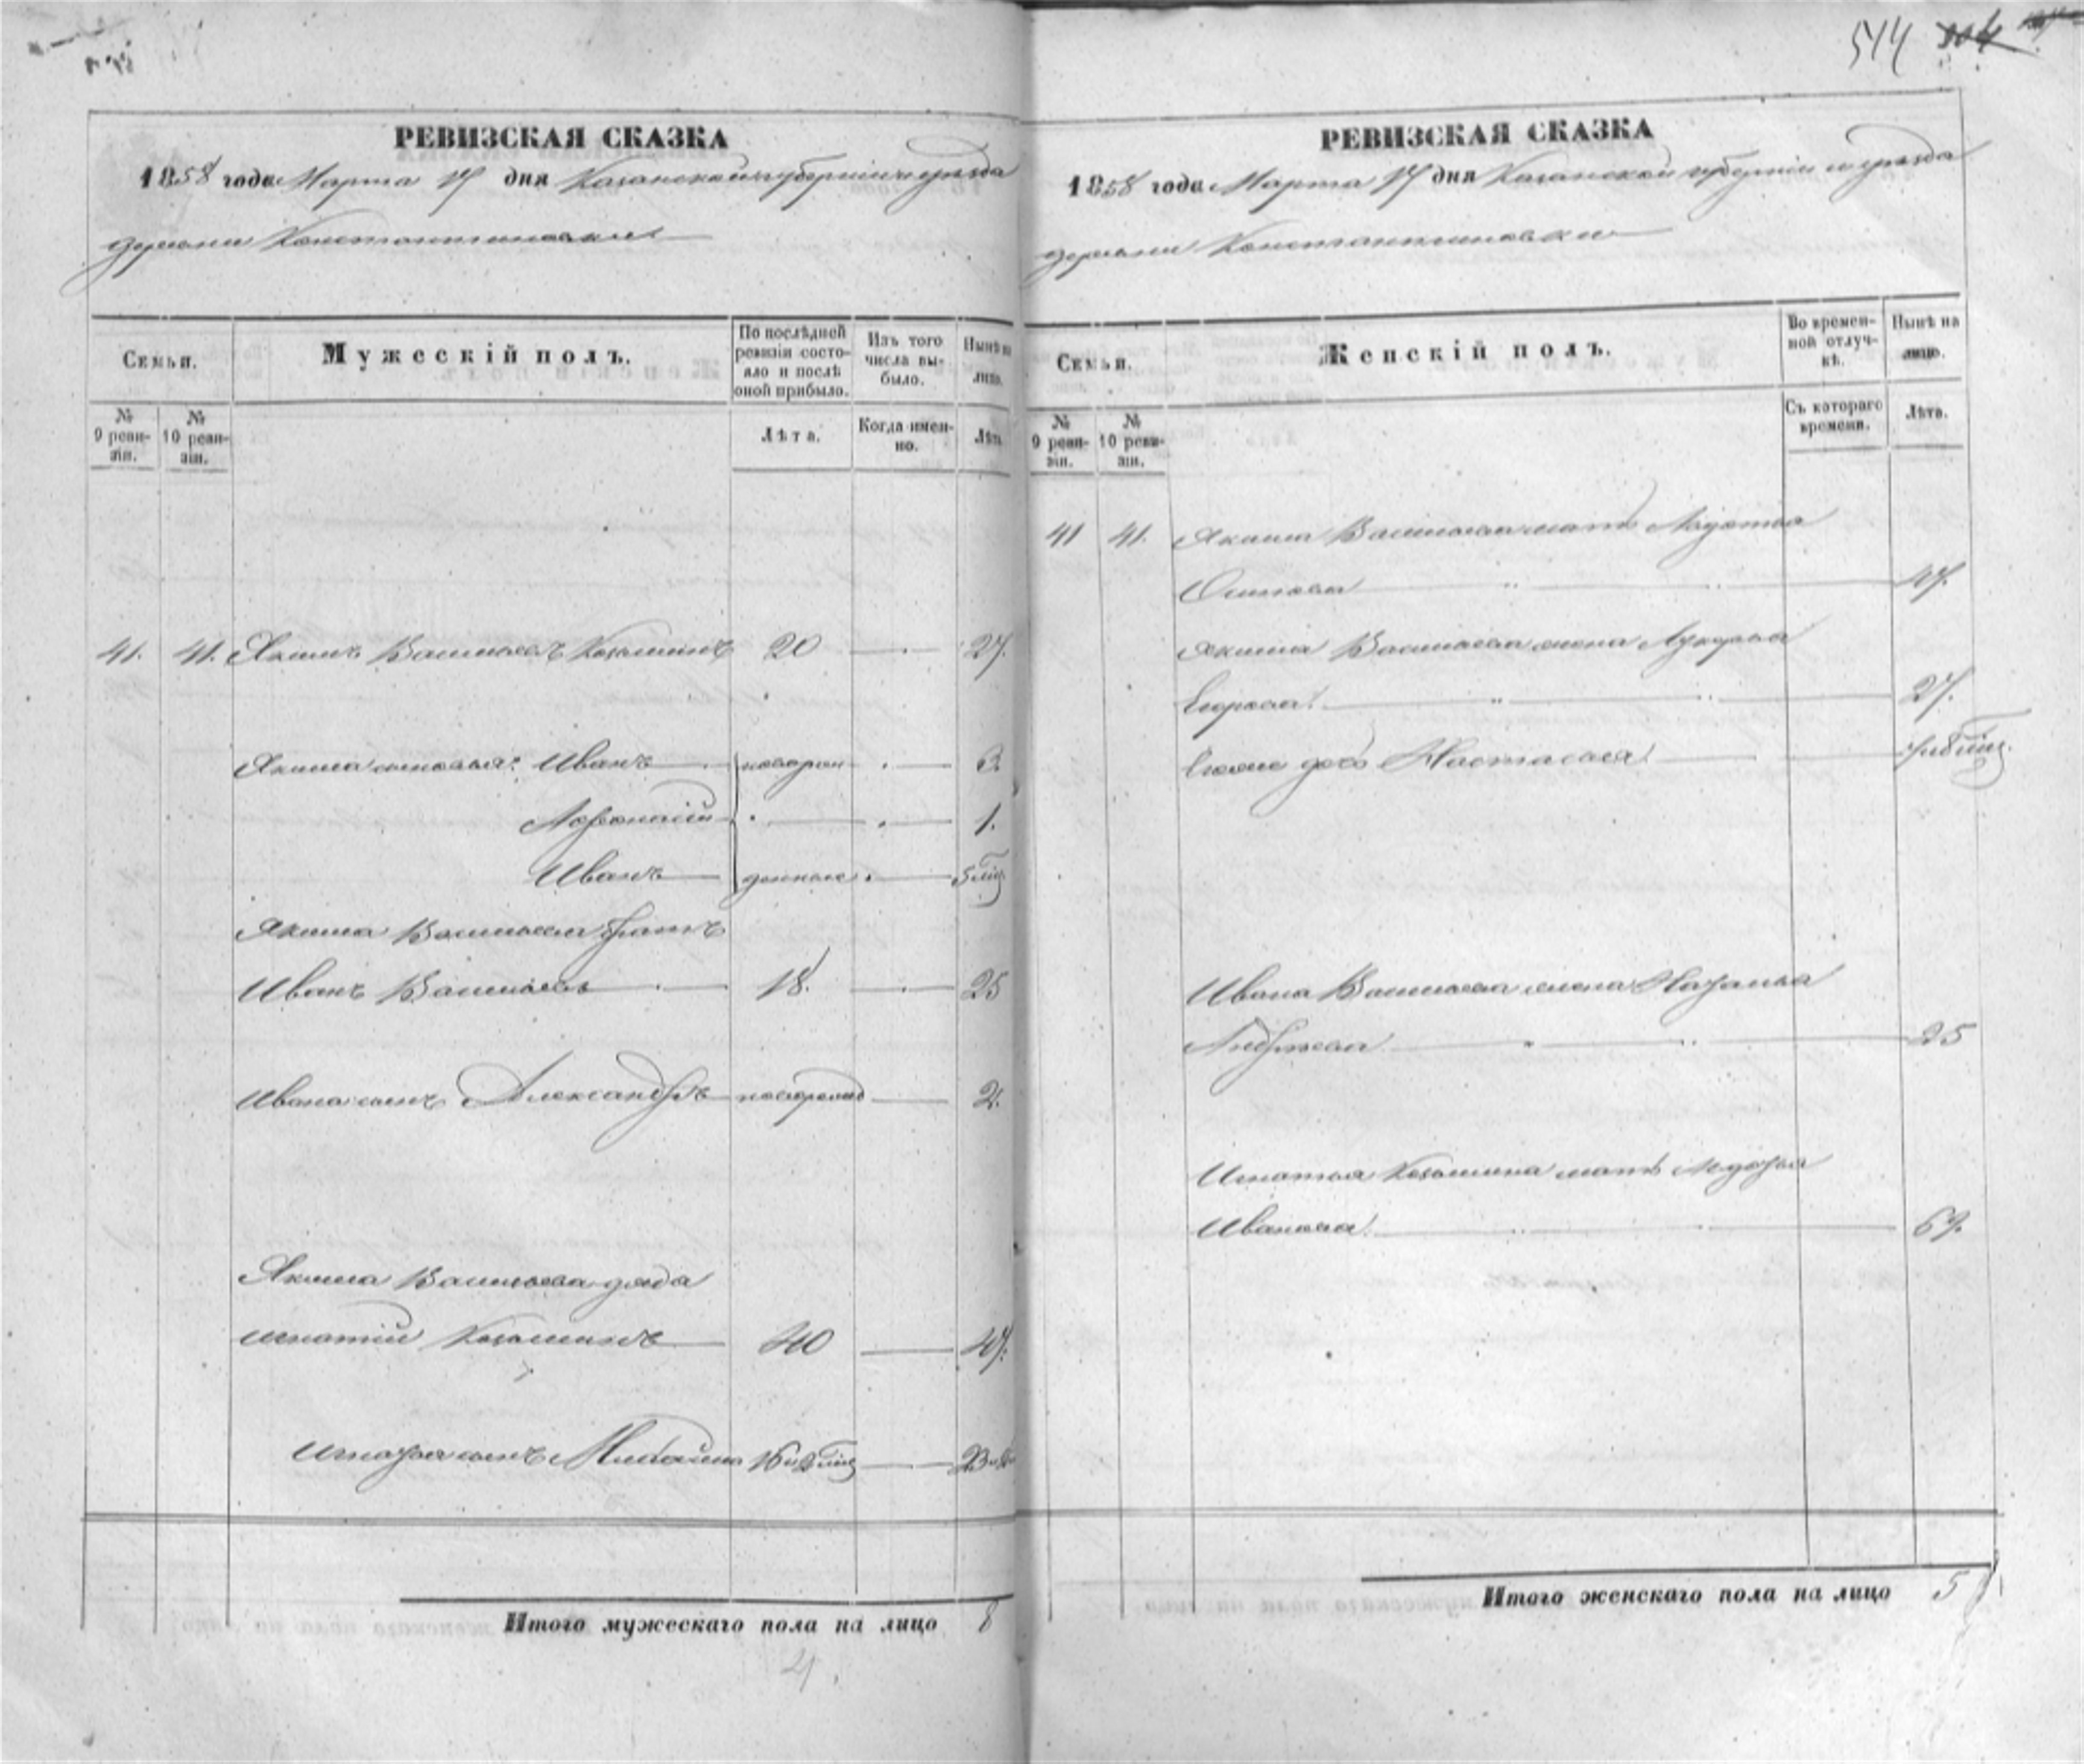 544
РЕВИЗСКАЯ СКАЗКА
1858 года Марта 17 дня Казанской губерніи и уезда
деревни Константиновки
Семьи.
Мужескій полъ.
По послѣдней ревизіи состояло и послѣ оной прибыло.
Изъ того числа выбыло.
Нынѣ на лицо.
№ 9 ревизіи.
№ 10 ревизіи.
Лѣта.
Когда именно.
Лѣта.
41. 41. Якимъ Васильевъ Козьминъ 20 27.
Якима сыновья: Иванъ новорож 3.
1.
Иванъ 5 мѣс
Якима Васильева братъ
Иванъ Васильевъ 18. 25
Ивана сынъ Александръ новорожд 2.
Якима Васильева дядя
Игнатій Козьминъ 40 47.
Игнатья сынъ Михайла 16 23
Итого мужескаго пола на лицо 8
4.
РЕВИЗСКАЯ СКАЗКА
1858 года Марта 17 дня Казанской губерніи и уезда
деревни Константиновки
Семьи.
Женскій полъ.
Во временной отлучкѣ.
Нынѣ на лицо.
№ 9 ревизіи.
№ 10 ревизіи.
Съ котораго времени.
Лѣта.
41 41. Якима Васильева мать
Осипова 47.
Якима Васильева жена Лукерья
Егорова 27.
дочь Настасья
Ивана Васильева жена
Андреева 25
Игнатья Козьмина мать
Иванова 67.
Итого женскаго пола на лицо 5